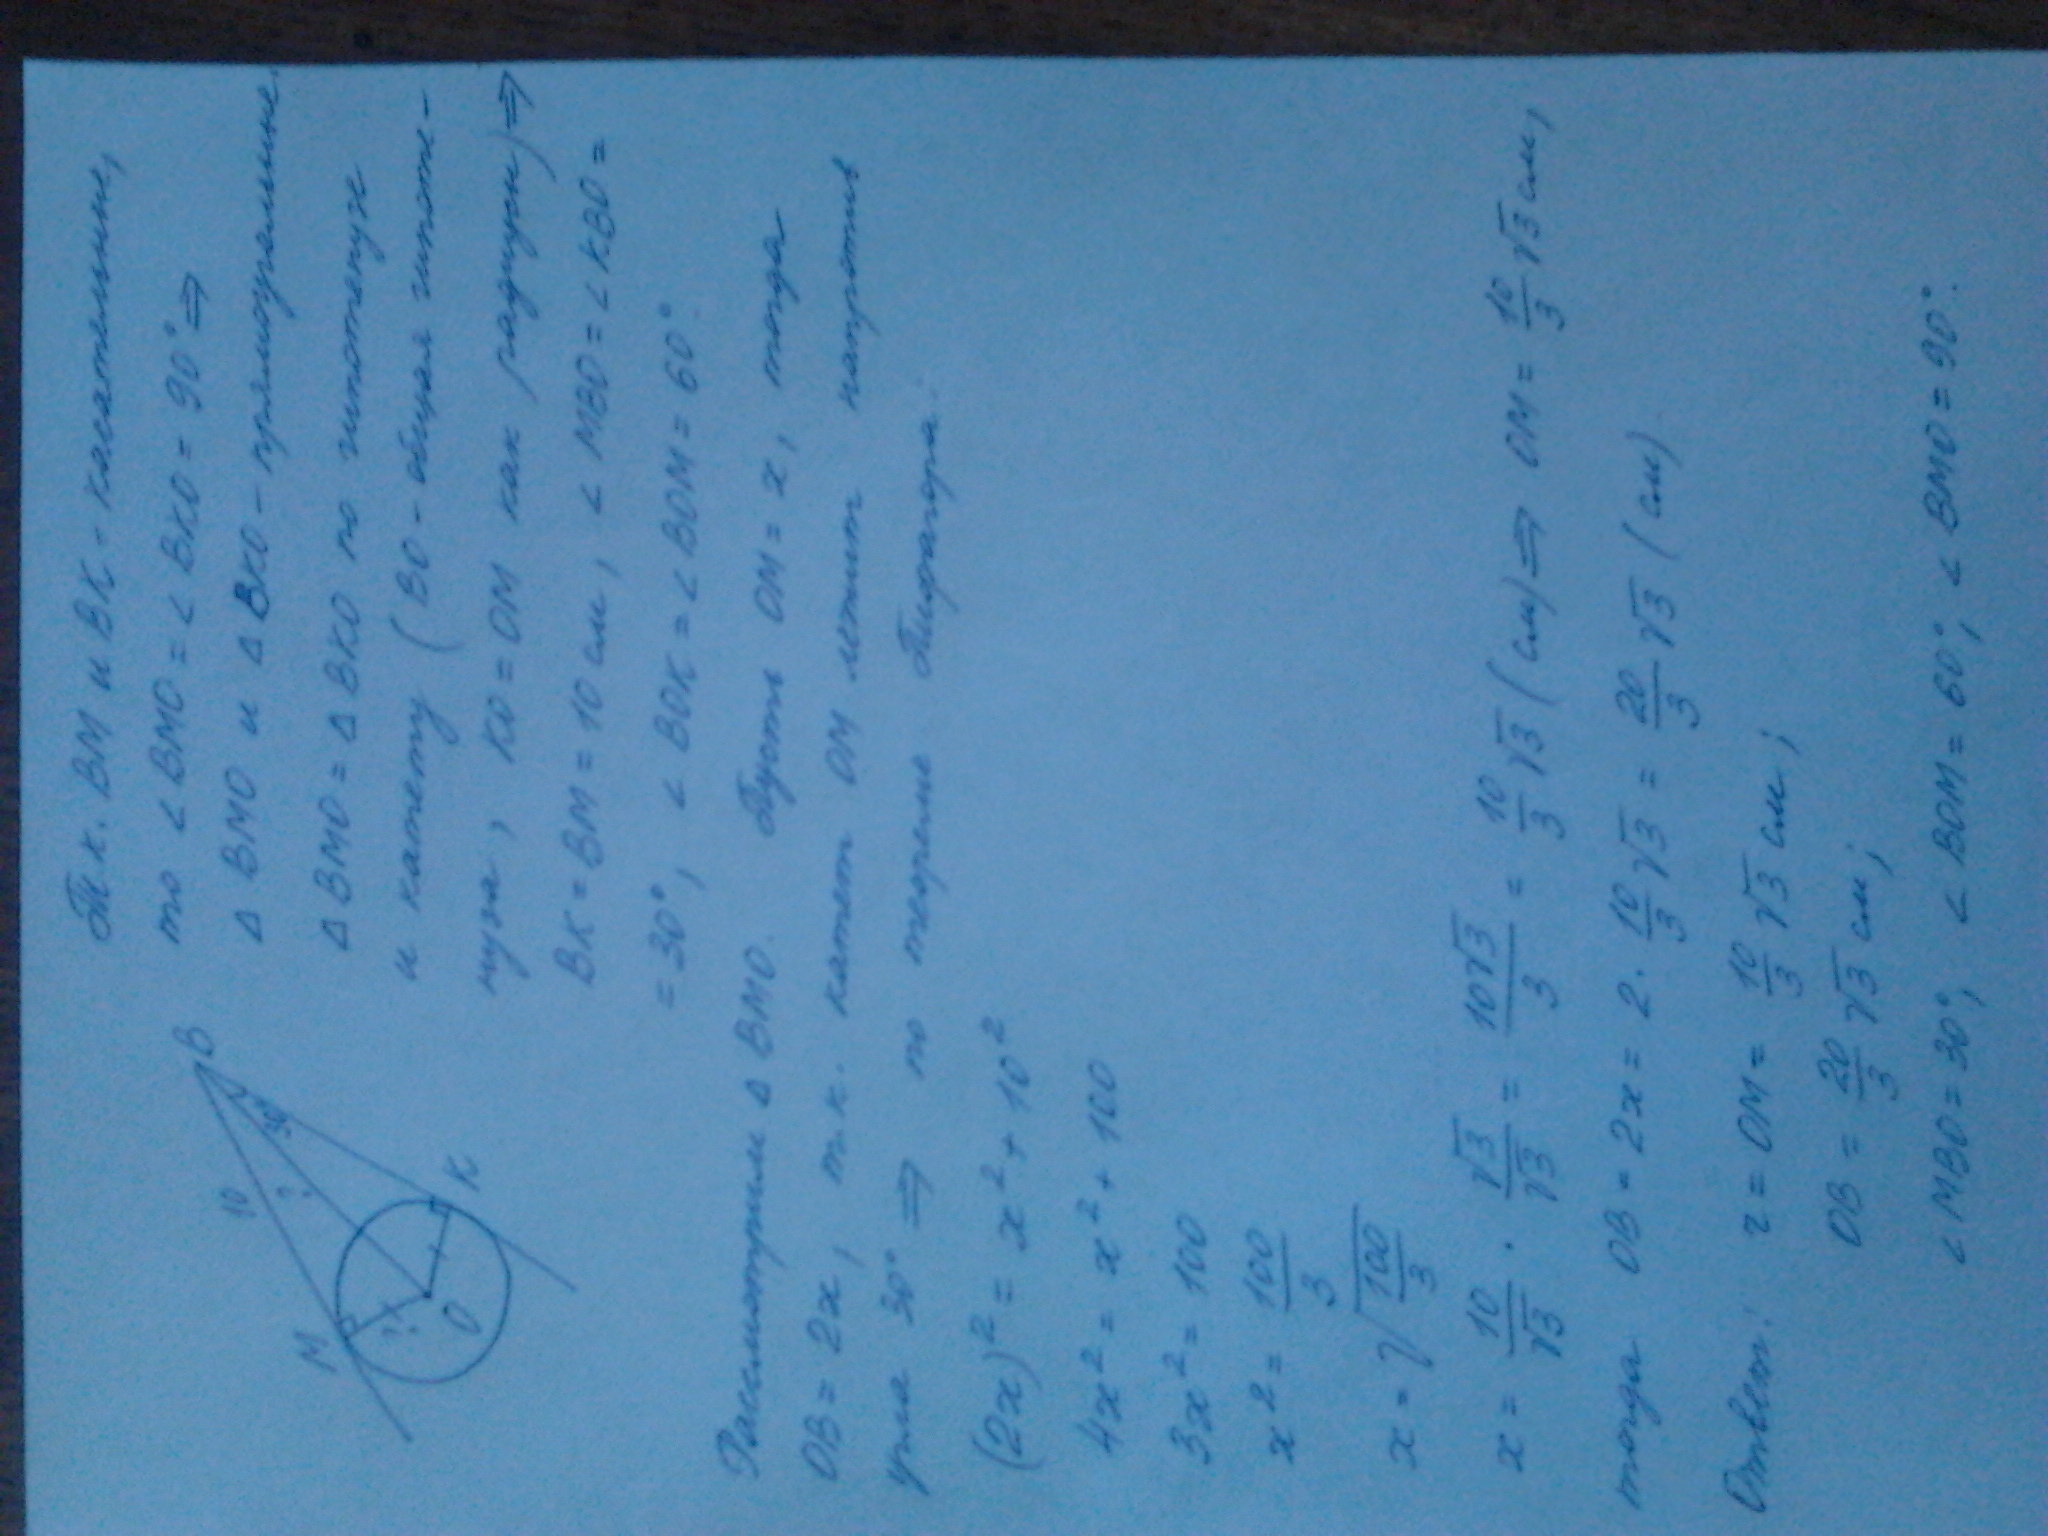 Т.к. BM и BK - касательные,
то ∠BMO = ∠BKO = 90° ⇒
Δ BMO и Δ BKO - прямоугольные.
Δ BMO = Δ BKO по гипотенузе
и катету (BO - общая гипоте-
нуза, KO = OM как радиусы) ⇒
BK = BM = 10 см, ∠ MBO = ∠ KBO =
= 30°, ∠ BOK = ∠ BOM = 60°.
M
10
B
?
30°
?
O
K
Рассмотрим Δ BMO. Пусть OM = x, тогда
OB = 2x, т.к. катет OM лежит напротив
угла 30° ⇒ по теореме Пифагора:
(2x)² = x² + 10²
4x² = x² + 100
3x² = 100
x² = 100/3
x = √(100/3)
x = 10/√3 · √3/√3 = 10√3/3 = 10/3 √3 (см) ⇒ OM = 10/3 √3 см,
тогда OB = 2x = 2 · 10/3 √3 = 20/3 √3 (см)
Ответ: r = OM = 10/3 √3 см;
OB = 20/3 √3 см;
∠ MBO = 30°; ∠ BOM = 60°; ∠ BMO = 90°.